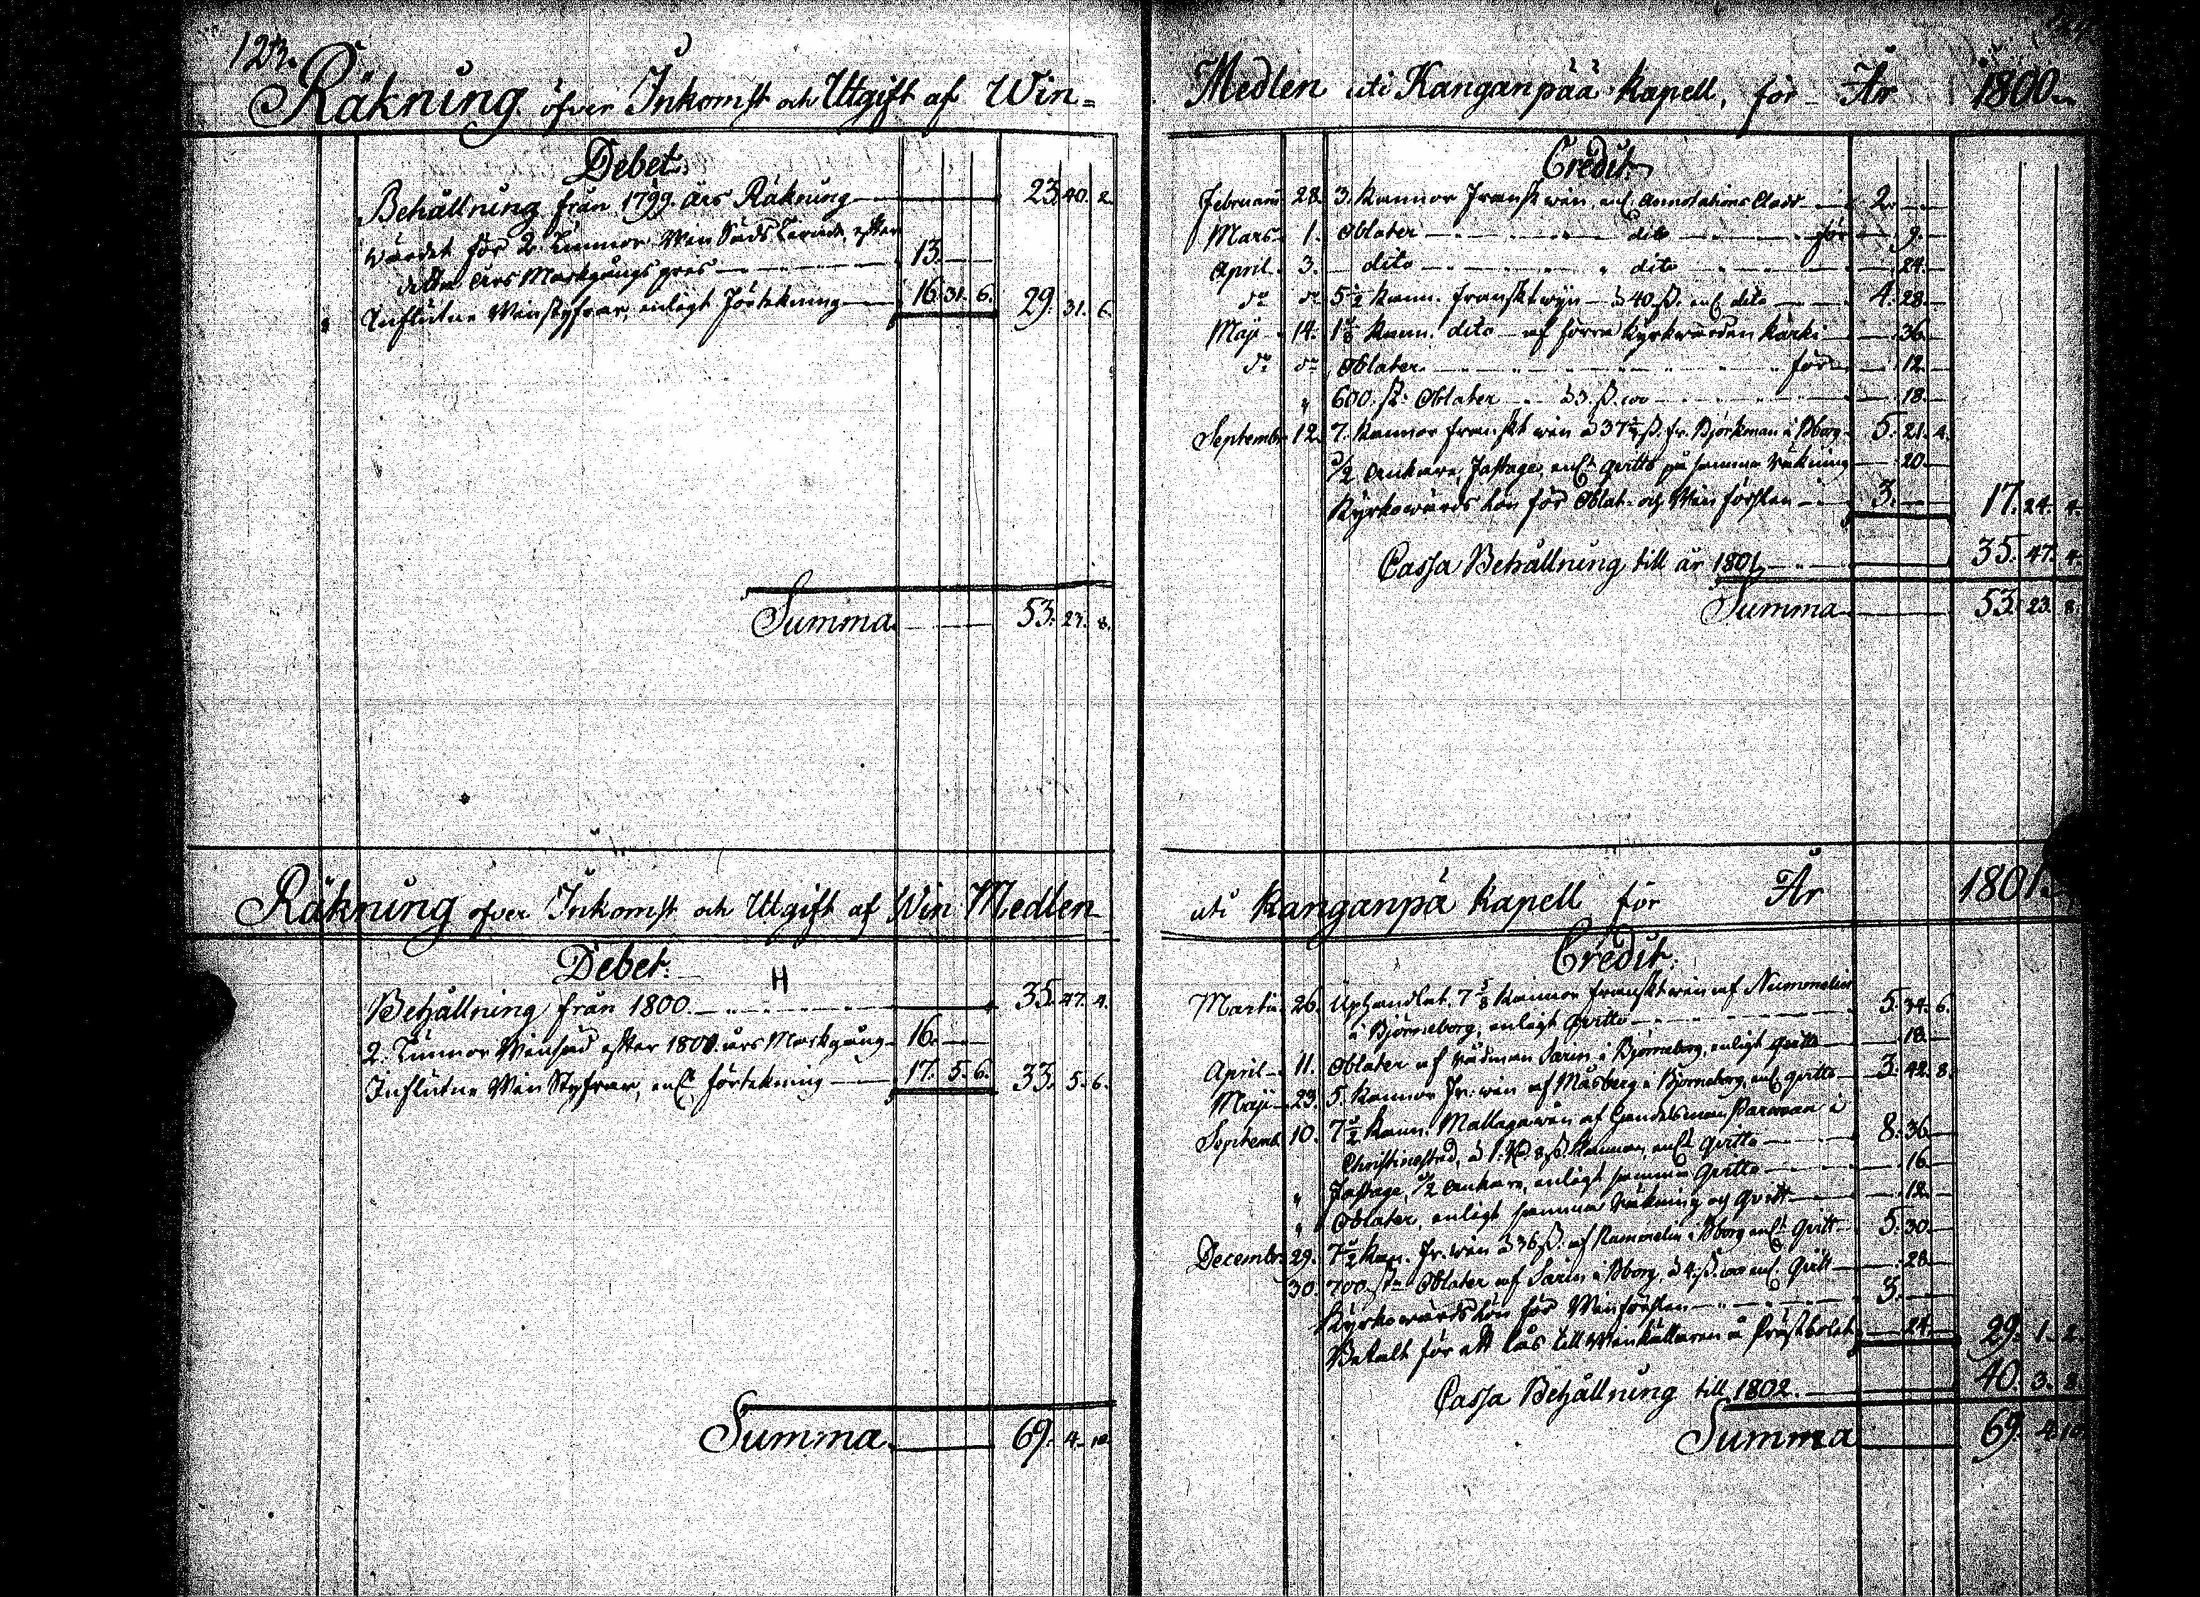 123.
Räkning öfver Inkomst och Utgift af Win=
Debet.
Behållning från 1799 års Räkning 23. 40. 2.
Wärdet för 2 Tunnor Win Säds efter
detta års Markgångs pris 13.
Influtne Winstyfrar, enligt Förtekning 16. 31. 6. 29. 31. 6.
Summa 53. 23. 8.
Medlen uti Kanganpää Kapell, för År 1800.
Credit.
Februarii 28. 3. Kannor Franskt win, enl. Annotations 2.
Mars 1. Oblater dito för 9.
April 3. dito dito 24.
do do 5 1/2 Kann. Franskt wijn à 40 ß. enl. dito 4. 28.
Maji 14. Kann. dito af förra Kyrkwärden Kärki 36.
do do Oblater för 12.
" 600 st. Oblater à 3 ß. 18.
Septembr 12. 7. Kannor Franskt win à ß. fr. Björkman i Bborg 5. 21. 4.
1/2 Ankare, Fastage, enl. qvitto på samma räkning 20.
Kyrkowärds lön för Oblat- och Win förslen 3. 17. 24. 4.
Cassa Behållning till år 1801 35. 47. 4.
Summa 53. 23. 8.
Räkning öfver Inkomst och Utgift af Win Medlen
Debet.
H
Behållning från 1800. 35. 47. 4.
2. Tunnor Winsäd efter 1801 års Markgång 16.
Influtne Win Styfrar, enl. förtekning 17. 5. 6. 33. 5. 6.
Summa 69. 4. 10.
uti Kanganpä Kapell för År 1801.
Credit.
Martii 26. Uphandlat 7 Kannor Franskt win af Nummelin
i Björneborg, enligt Qvitto 5. 34. 6.
April 11. Oblater af Rådman Sarin i Björneborg, enligt qvitto 18.
Maji 23. 5. Kannor Fr: win af Måsberg i Björneborg, enl. qvitto 3. 42. 8.
Septemb. 10. 7 1/2 Kann. Mallaga win af Handelsman Parman i
Christinestad, à 1. Rd. 8 ß. Kannan, enl. qvitto 8. 36.
" Fastage, 1/2 Ankare, enligt samma Qvitto 16.
" Oblater, enligt samma räkning och Qvitt 12.
Decembr. 29. 7 1/2 Kan. Fr: win à 36 ß. af Nummelin i Bborg enl. Qvitt 5. 30.
30. 700 st. Oblater af Sarin i Bborg, à 4 ß. enl. Qvitt 28.
Kyrkowärds lön för Winförslen 3.
Betalt för ett lås till Winkällaren å Prästbolet 24. 29. 1. 2.
Cassa Behållning till 1802. 40. 3. 8.
Summa 69. 4. 10.